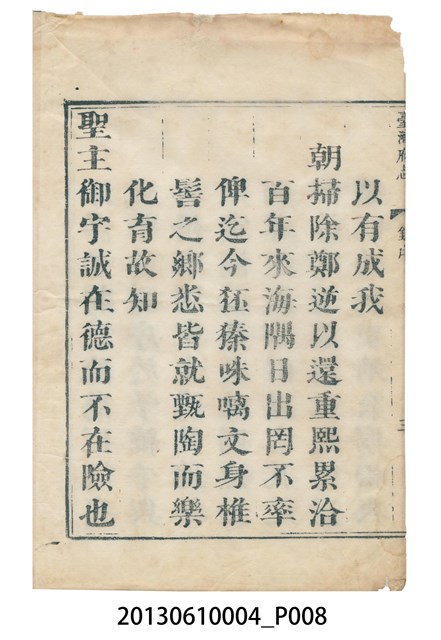 臺灣府志
序
三
以有成我
朝掃除鄭逆以還重熙累洽
百年來海隅日出罔不率
俾迄今狉獉咮噣文身椎
髻之鄉悉皆就甄陶而樂
化育故知
聖主御宇誠在德而不在險也
20130610004_P008